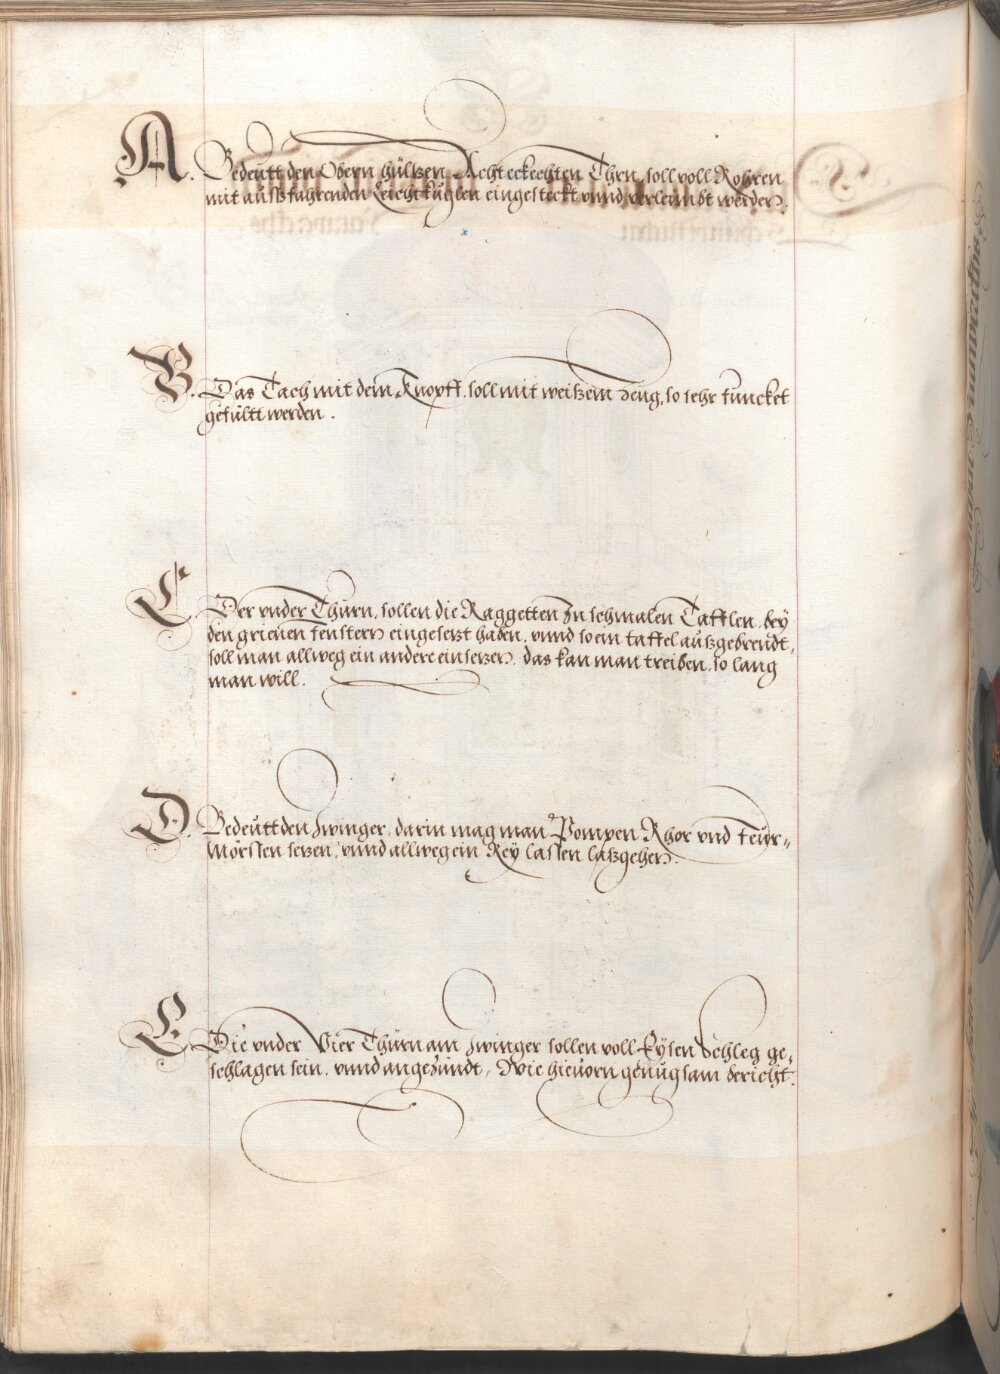 A. Bedeutt den Obern hültzen Achteckechten Thrn, soll voll Rohren
mit außfahrenden Leichtkuglen eingesteckt vnnd verleimbt werden.
B. Das Tach mit dem Knopff, soll mit weißem Zeug, so sehr funcket
gefültt werden.
C Der vnder Thurn, sollen die Raggetten zu schmalen Tafflen, bey
den grienen fenstern eingesetzt haben, vnnd so ein taffel außgebrendt,
soll man allweg ein andere einsetzen, das kan man treiben, so lang
man will.
D. Bedeutt den Zwinger, darin mag man Pompen Rhor vnd feür-
Mörssen setzen, vnnd allweg ein Rey lassen laßgehen.
E Die vnder Vier Thürn am Zwinger sollen voll Eysen Schleg ge-
schlagen sein, vnnd angezündt, Wie hieuorn genugsam bericht.